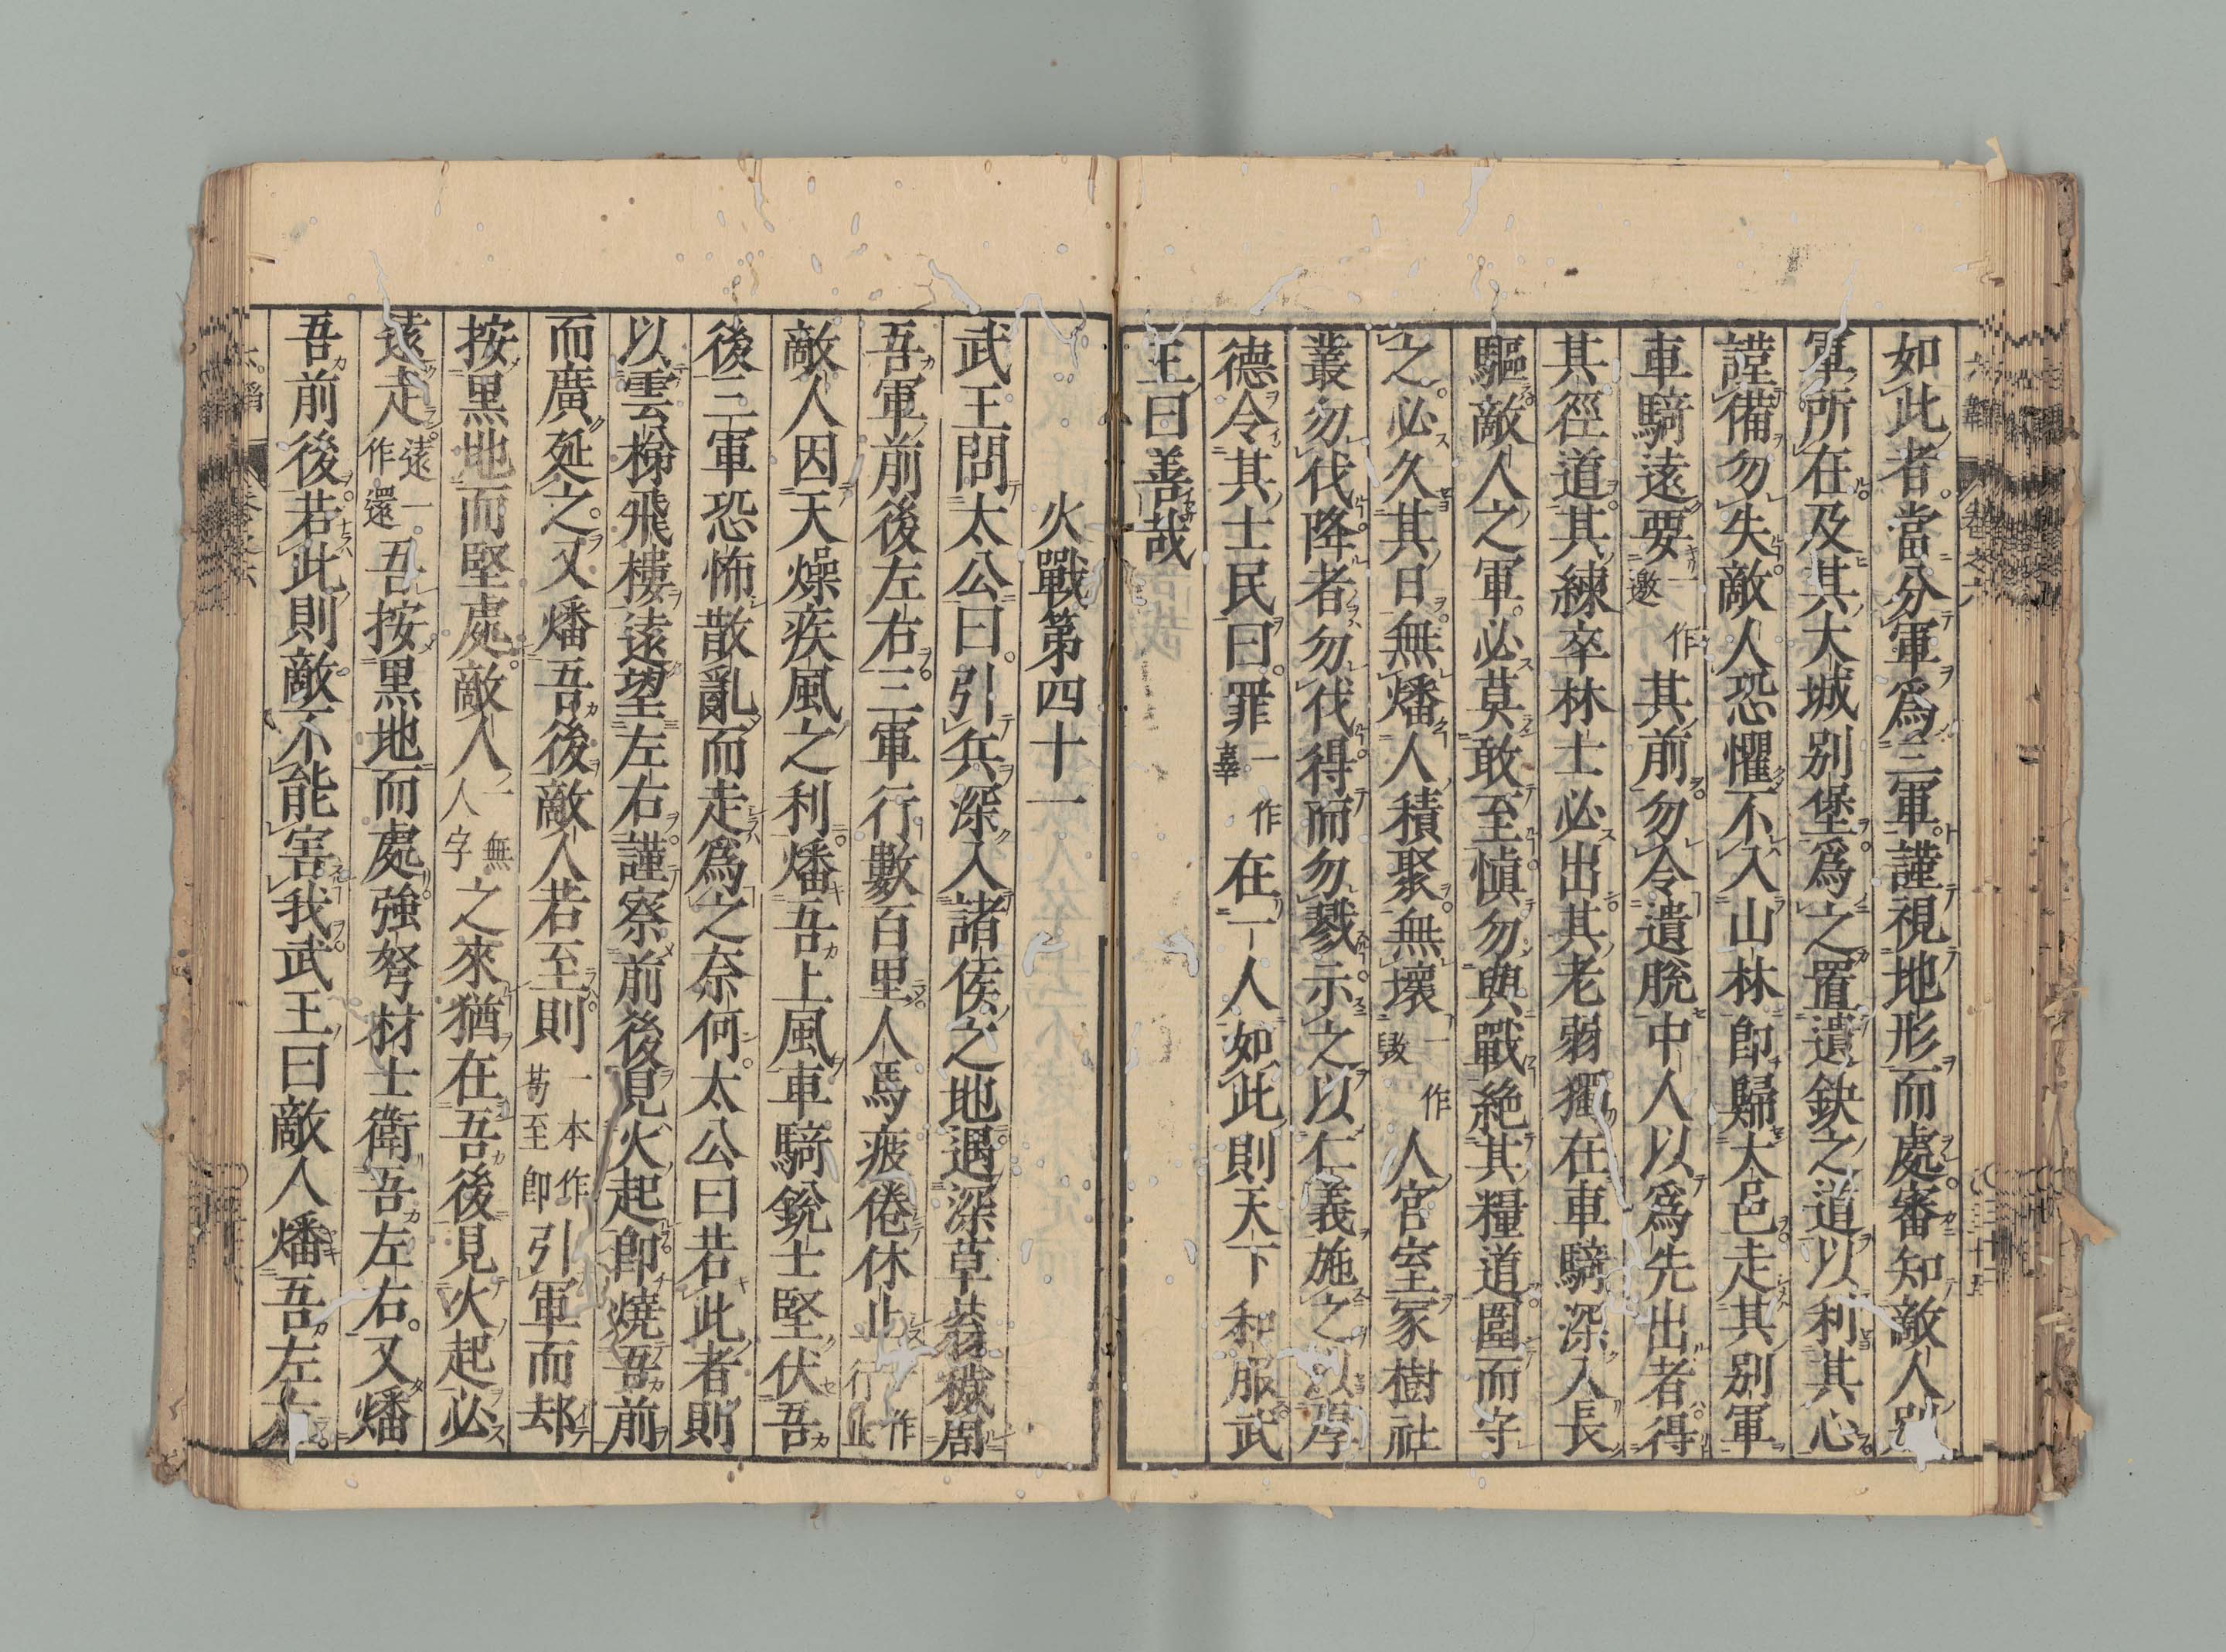 如此者當分軍爲三軍謹視地形而處審知敵人別
軍所在及其大城別堡爲之置遺鈌之道以利其心
謹備勿失敵人恐懼不入山林即歸大邑走其別軍
車騎遠要一作邀其前勿令遺脫中人以爲先出者得
其徑道其練卒林士必出其老弱獨在車騎深入長
驅敵人之軍必莫敢至愼勿與戰絶其糧道圍而守
之必久其日無燔人積聚無壞一作毀人宮室冢樹社
叢勿伐降者勿伐得而勿戮示之以仁義施之以厚
德令其士民曰罪一作辜在一人如此則天下和服武
王曰善哉
火戰第四十一
武王問太公曰引兵深入諸侯之地遇深草蓊穢周
吾軍前後左右三軍行數百里人馬疲倦休止一作行止
敵人因天燥疾風之利燔吾上風車騎銳士堅伏吾
後三軍恐怖散亂而走爲之奈何太公曰若此者則
以雲梯飛樓遠望左右謹察前後見火起即燒吾前
而廣延之又燔吾後敵人若至則一本作苟至即引軍而却
按黒地而堅處敵人一無人字之來猶在吾後見火起必
遠走遠一作還吾按黒地而處強弩材士衛吾左右又燔
吾前後若此則敵不能害我武王曰敵人燔吾左右